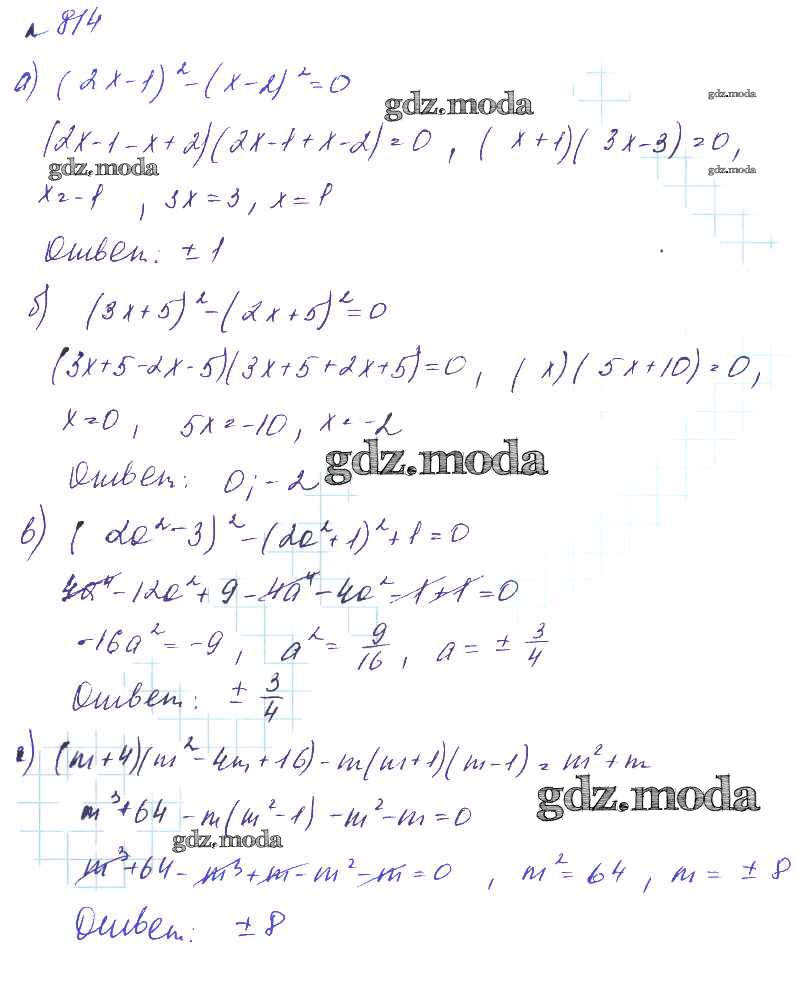 № 814
а) (2x-1)² - (x-2)² = 0
gdz.moda
gdz.moda
(2x-1-x+2)(2x-1+x-2) = 0, (x+1)(3x-3) = 0,
gdz.moda
gdz.moda
x = -1, 3x = 3, x = 1
Ответ: ± 1
б) (3x+5)² - (2x+5)² = 0
(3x+5-2x-5)(3x+5+2x+5) = 0, (x)(5x+10) = 0,
x = 0, 5x = -10, x = -2
gdz.moda
Ответ: 0; -2
в) (2a² - 3)² - (2a² + 1)² + 1 = 0
4a⁴ - 12a² + 9 - 4a⁴ - 4a² - 1 + 1 = 0
-16a² = -9, a² = 9/16, a = ± 3/4
Ответ: ± 3/4
г) (m+4)(m² - 4m + 16) - m(m+1)(m-1) = m² + m
gdz.moda
m³ + 64 - m(m² - 1) - m² - m = 0
gdz.moda
m³ + 64 - m³ + m - m² - m = 0, m² = 64, m = ± 8
Ответ: ± 8